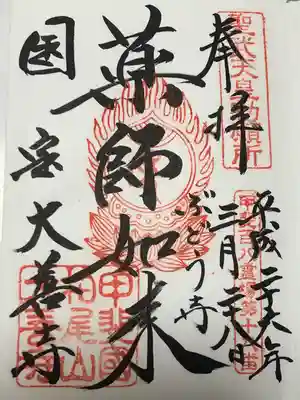 奉拝
聖武天皇勅願所
平成二十六年
三月二十八日
甲斐百八霊場
ぶどう寺
薬師如来
国宝大善寺
甲斐國
柏尾山
大善寺